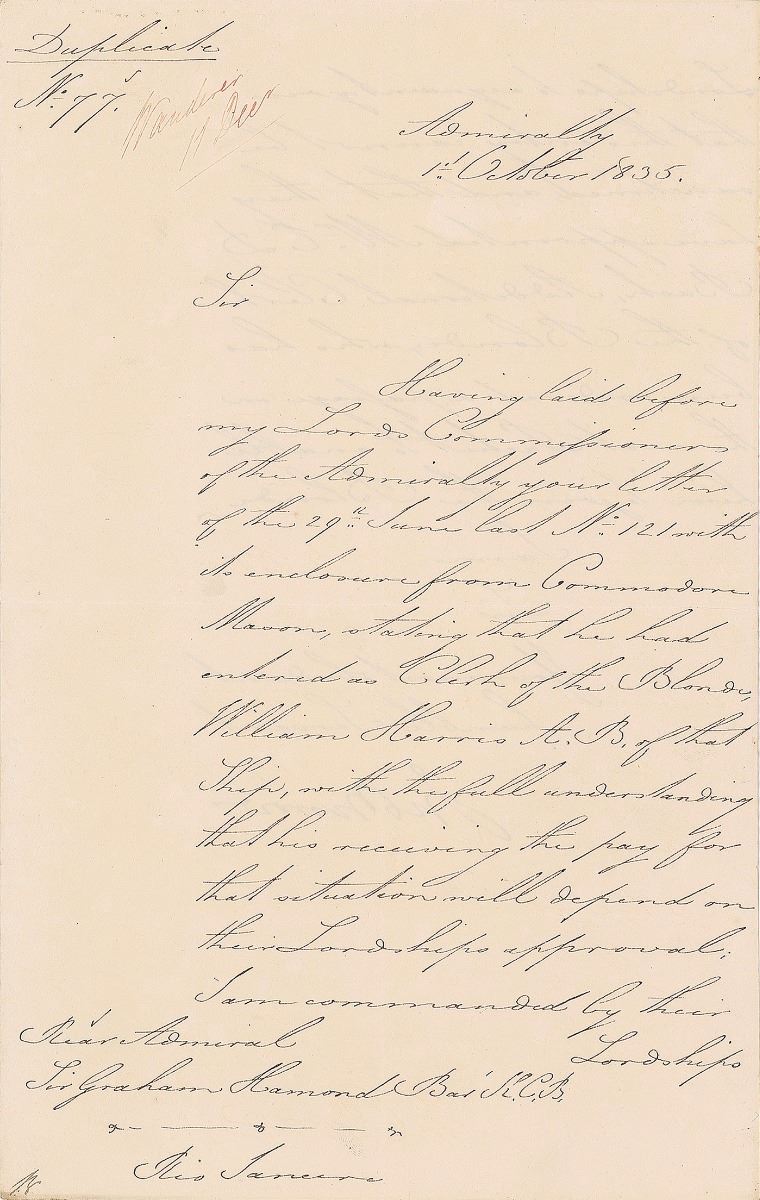 Duplicate
No. 77.
Wanderer
11 Decr
Admiralty
1st October 1835.
Sir
Having laid before
my Lords Commissioners
of the Admiralty your letter
of the 29th June last No. 121 with
its enclosure from Commodore
Mason, stating that he had
entered as Clerk of the Blonde,
William Harris A. B. of that
Ship, with the full understanding
that his receiving the pay for
that situation will depend on
their Lordships approval;
I am commanded by their
Lordships
Rear Admiral
Sir Graham Hamond Bart K.C.B.
Rio Janeiro